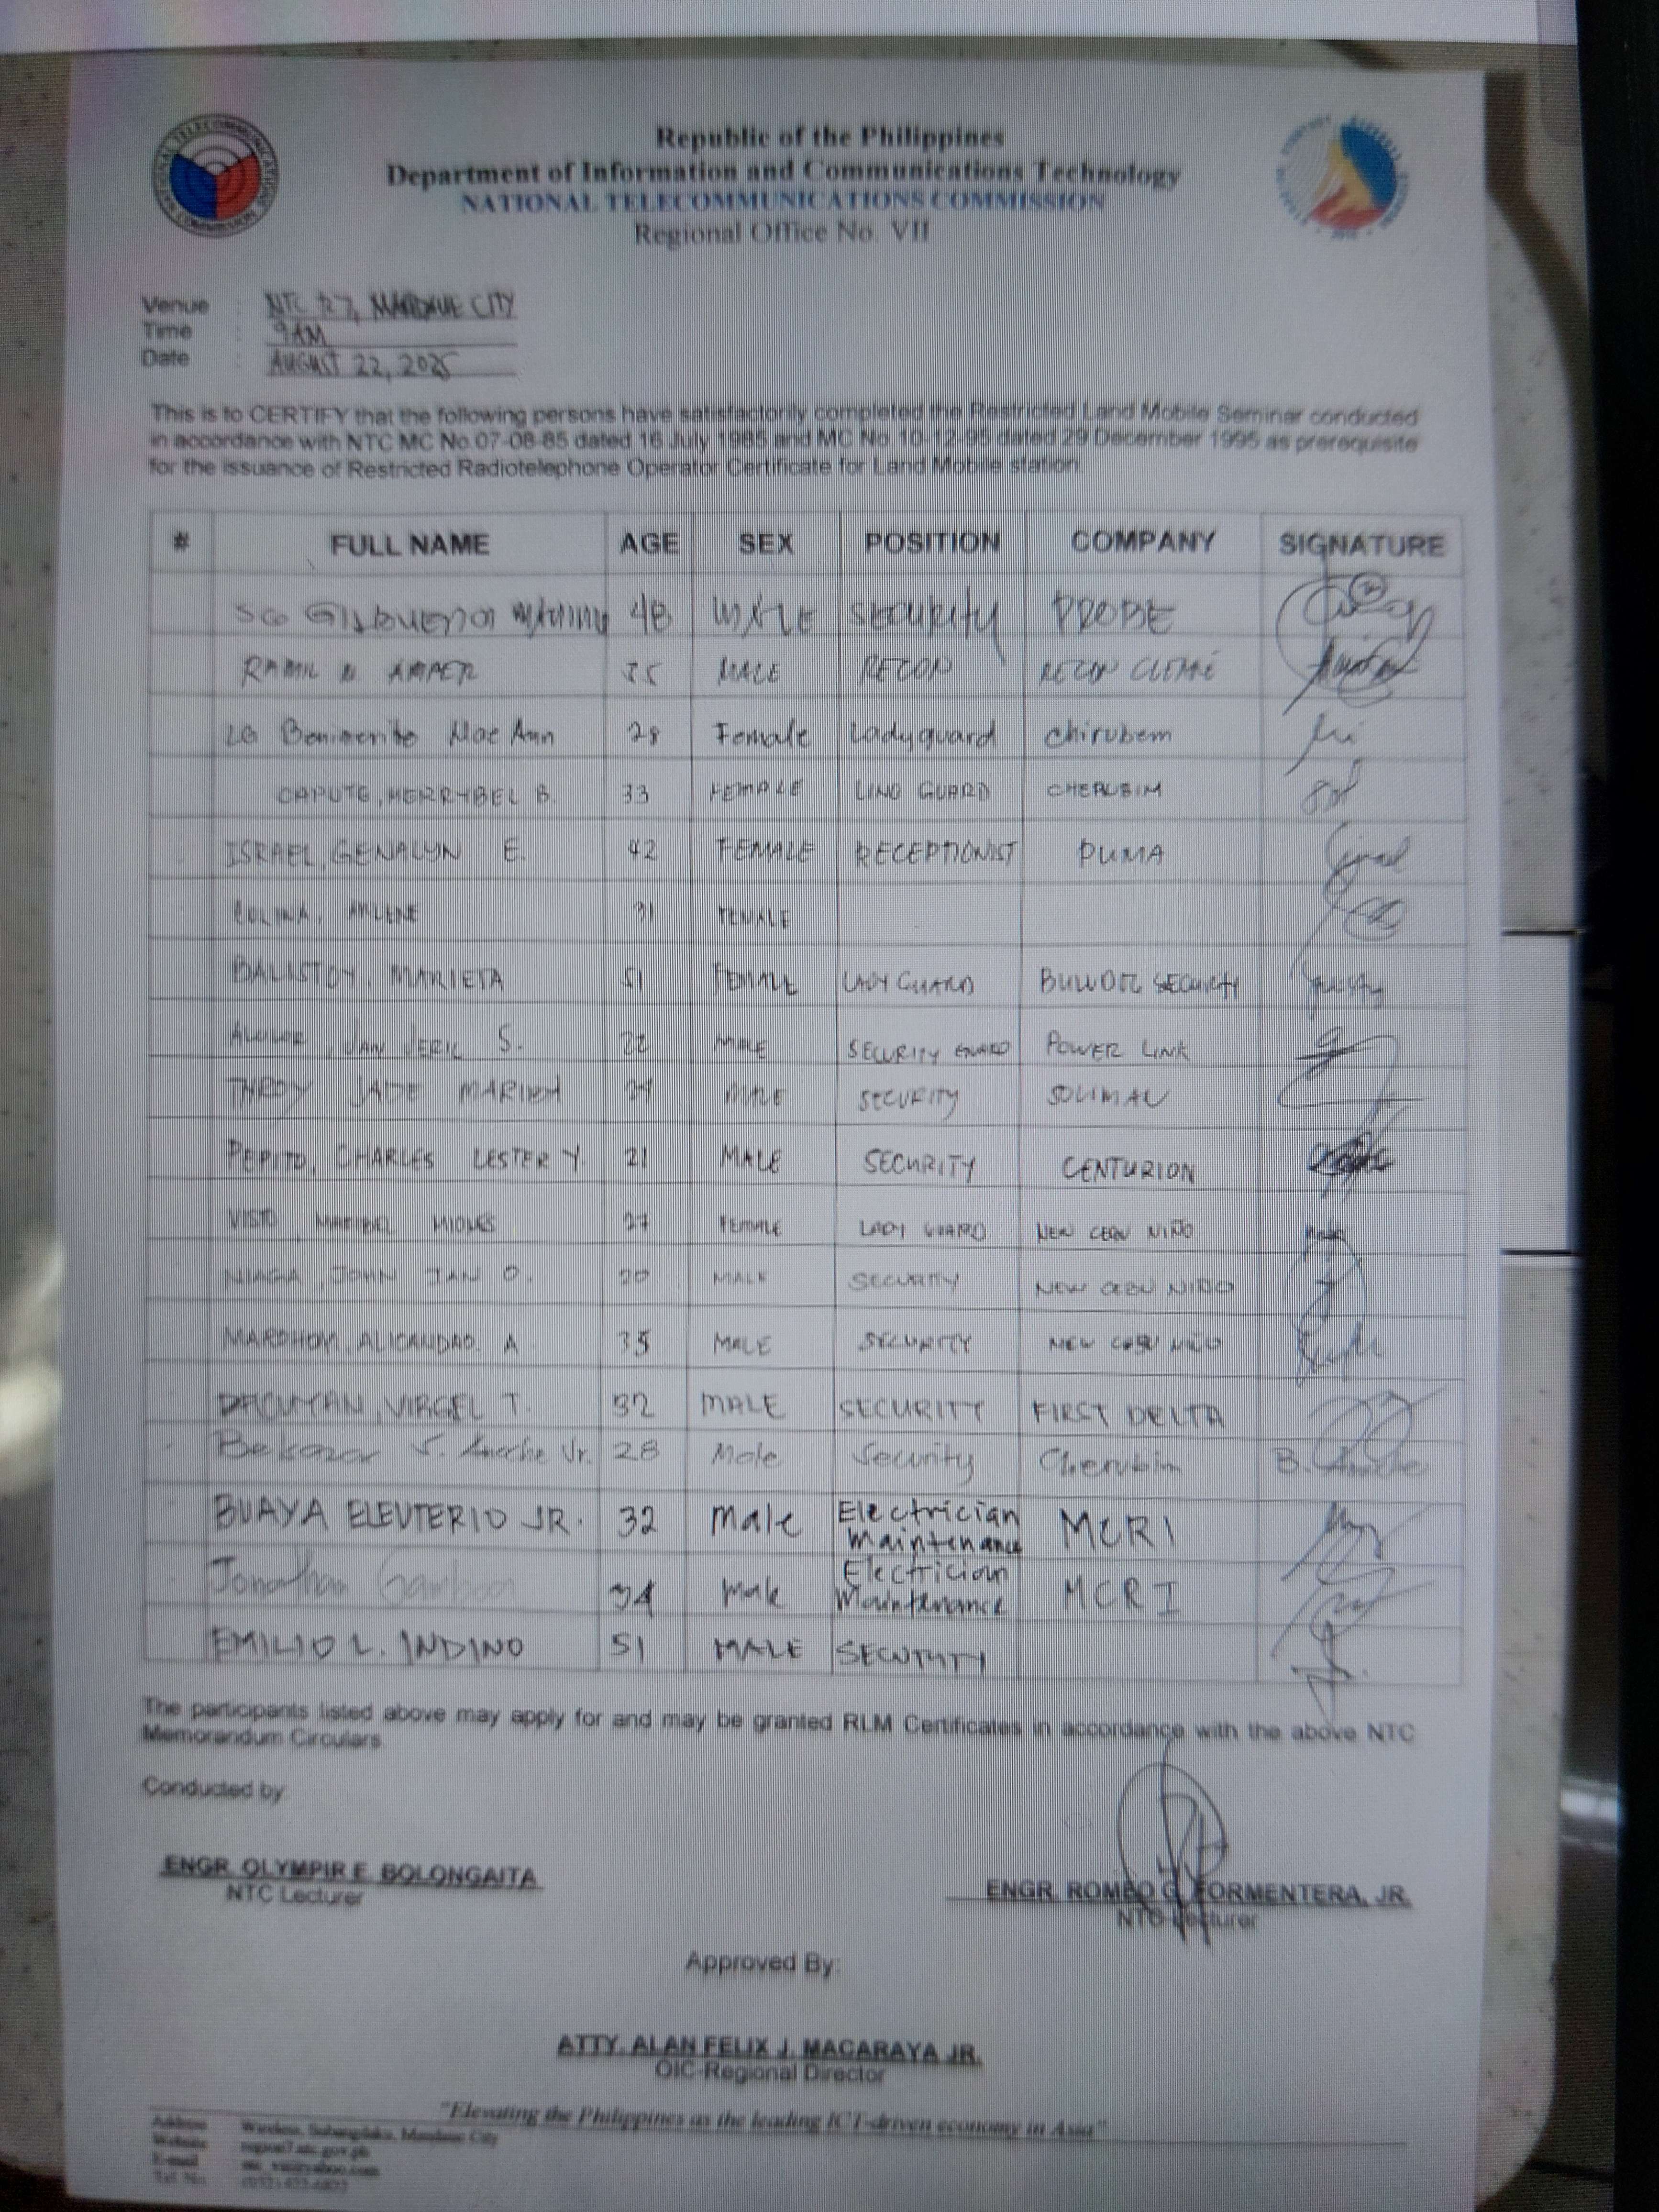 Republic of the Philippines
Department of Information and Communications Technology
NATIONAL TELECOMMUNICATIONS COMMISSION
Regional Office No. VII
Venue : NTC R7, MANDAUE CITY
Time : 9AM
Date : AUGUST 22, 2025
This is to CERTIFY that the following persons have satisfactorily completed the Restricted Land Mobile Seminar conducted
in accordance with NTC MC No.07-08-85 dated 16 July 1985 and MC No.10-12-95 dated 29 December 1995 as prerequisite
for the issuance of Restricted Radiotelephone Operator Certificate for Land Mobile station.
# FULL NAME AGE SEX POSITION COMPANY SIGNATURE
48 MALE Security PROBE
RAMIL AMPER MALE RECON RECON
LG Benimerito Mae Ann 28 Female Ladyguard chirubem
CAPUTE, MERRYBEL B. 33 FEMALE GUARD CHERUBIM
ISRAEL, GENALYN E. 42 FEMALE RECEPTIONIST PUMA
31 FEMALE
BALISTOY, MARIETA 51 FEMALE LADY GUARD SECURITY
JAN JERIC S. 22 MALE SECURITY GUARD POWER LINK
JADE MALE SECURITY
PEPITO, CHARLES LESTER Y. 21 MALE SECURITY CENTURION
VISTO 27 FEMALE LADY GUARD NEW CEBU NIÑO
NIAGA, JOHN IAN O. 20 MALE SECURITY NEW CEBU NIÑO
MARDHOM, ALICANDAO. A 35 MALE SECURITY NEW CEBU NIÑO
DACUYAN, VIRGEL T. 32 MALE SECURITY FIRST DELTA
Jr. 28 Male Security Cherubim
BUAYA ELEUTERIO JR. 32 Male Electrician Maintenance MCRI
Jonathan Gamboa 34 Male Electrician Maintenance MCRI
EMILIO L. INDINO 51 MALE
The participants listed above may apply for and may be granted RLM Certificates in accordance with the above NTC
Memorandum Circulars
Conducted by
ENGR. OLYMPIR E. BOLONGAITA
NTC Lecturer
ENGR. ROMEO G. FORMENTERA, JR.
NTC Lecturer
Approved By:
ATTY. ALAN FELIX J. MACARAYA JR.
OIC-Regional Director
"Elevating the Philippines as the leading ICT-driven economy in Asia"
Address
Website
E-mail
Tel. No.